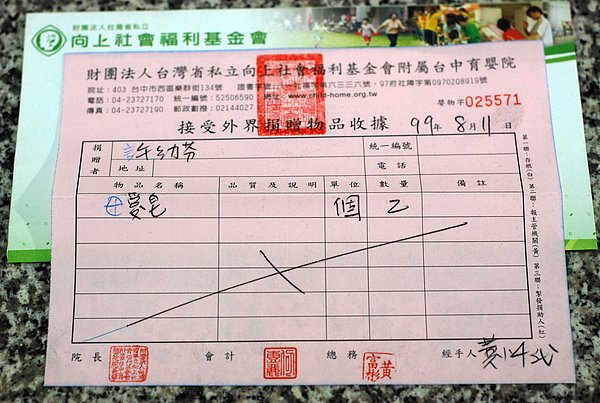 財團法人台灣省私立
向上社會福利基金會
財團法人台灣省私立向上社會福利基金會附屬台中育嬰院
院址：403 台中市西區樂群街134號
電話：04-23727170 統一編號：52506590
傳真：04-23727190 郵政劃撥：02144027
網址：www.child-home.org.tw
97府社障字第0970208919號
嬰物字 025571
接受外界捐贈物品收據 99年8月11日
捐贈者 許幼芬 統一編號
地址 電話
物品名稱 品質及說明 單位 數量 備註
個 乙
第一聯：存根(白) 第二聯：報主管機關(黃) 第三聯：掣發捐助人(紅)
院長 會計 總務 黃富彬 經手人